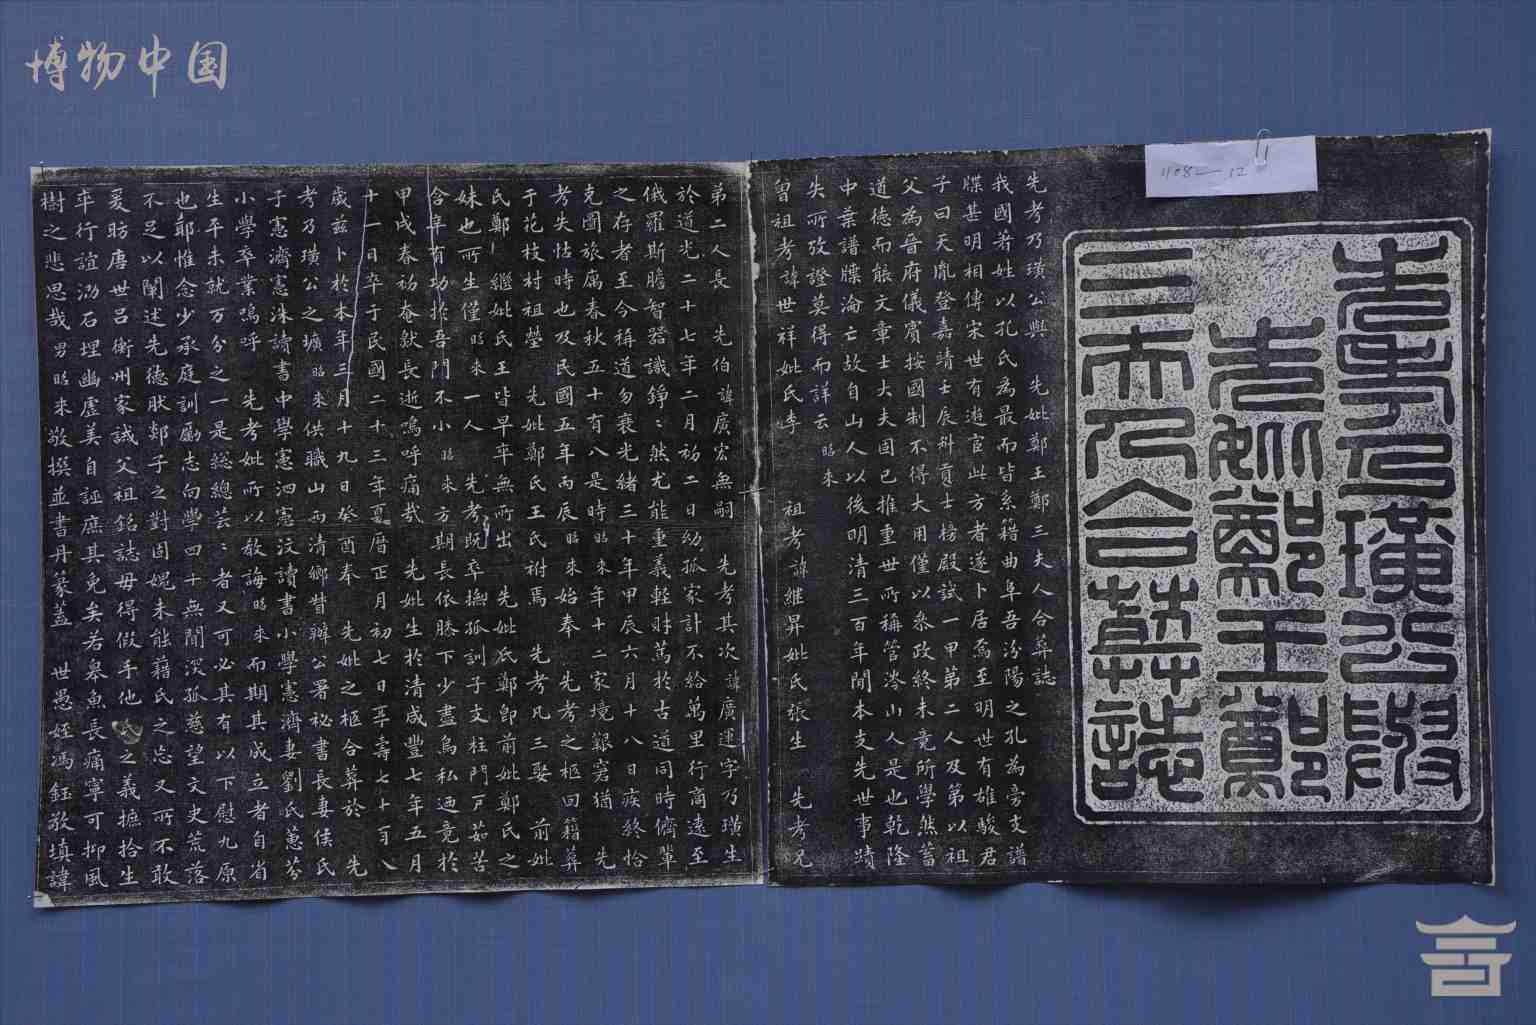 博物中国
1108—12
先考乃璜公暨
先妣鄭王鄭
三夫人合葬誌
先考乃璜公與　先妣鄭王鄭三夫人合葬誌
我國著姓以孔氏為最而皆系籍曲阜吾汾陽之孔為旁支譜
牒甚明相傳宋世有遊宦此方者遂卜居焉至明世有雄駿君
子曰天胤登嘉靖壬辰科貢士榜殿試一甲第二人及第以祖
父為晉府儀賓按國制不得大用僅以參政終未竟所學然蓄
道德而能文章士大夫固已推重世所稱管涔山人是也乾隆
中葉譜牒淪亡故自山人以後明清三百年間本支先世事蹟
失所攷證莫得而詳云　昭來
曾祖考諱世祥妣氏李　祖考諱繼昇妣氏張生　先考兄
弟二人長　先伯諱廣宏無嗣　先考其次諱廣運字乃璜生
於道光二十七年二月初二日幼孤家計不給萬里行商遠至
俄羅斯膽智器識錚〻然尤能重義輕財篤於古道同時儕輩
之存者至今稱道勿衰光緒三十年甲辰六月十八日疾終恰
克圖旅寓春秋五十有八是時昭來年十二家境艱窘猶　先
考失怙時也及民國五年丙辰昭來始奉　先考之柩回籍葬
于花枝村祖塋　先妣鄭氏王氏祔焉　先考凡三娶　前妣
氏鄭　繼妣氏王皆早卒無所出　先妣氏鄭即前妣鄭氏之
妹也所生僅昭來一人　先考既卒撫孤訓子支柱門戶茹苦
含辛有功於吾門不小昭來方期長依膝下少盡烏私迺竟於
甲戌春初奄歘長逝嗚呼痛哉　先妣生於清咸豐七年五月
十一日卒于民國二十三年夏曆正月初七日享壽七十有八
歲茲卜於本年三月十九日癸酉奉　先妣之柩合葬於　先
考乃璜公之壙昭來供職山西清鄉督辦公署祕書長妻侯氏
子憲濟憲洙讀書中學憲泗憲汶讀書小學憲濟妻劉氏蕙芬
小學卒業嗚呼　先考妣所以教誨昭來而期其成立者自省
生平未就万分之一是総總芸〻者又可必其有以下慰九原
也耶惟念少承庭訓勵志向學四十無聞深孤慈望文史荒落
不足以闡述先德狀郯子之對固媿未能藉氏之忘又所不敢
爰昉唐世呂衡州家誡父祖銘誌毋得假手他氏之義摭拾生
卒行誼泐石埋幽虛美自誣庶其免矣若皋魚長痛寧可抑風
樹之悲思哉男昭來敬撰並書丹篆蓋　世愚姪馮鈺敬填諱